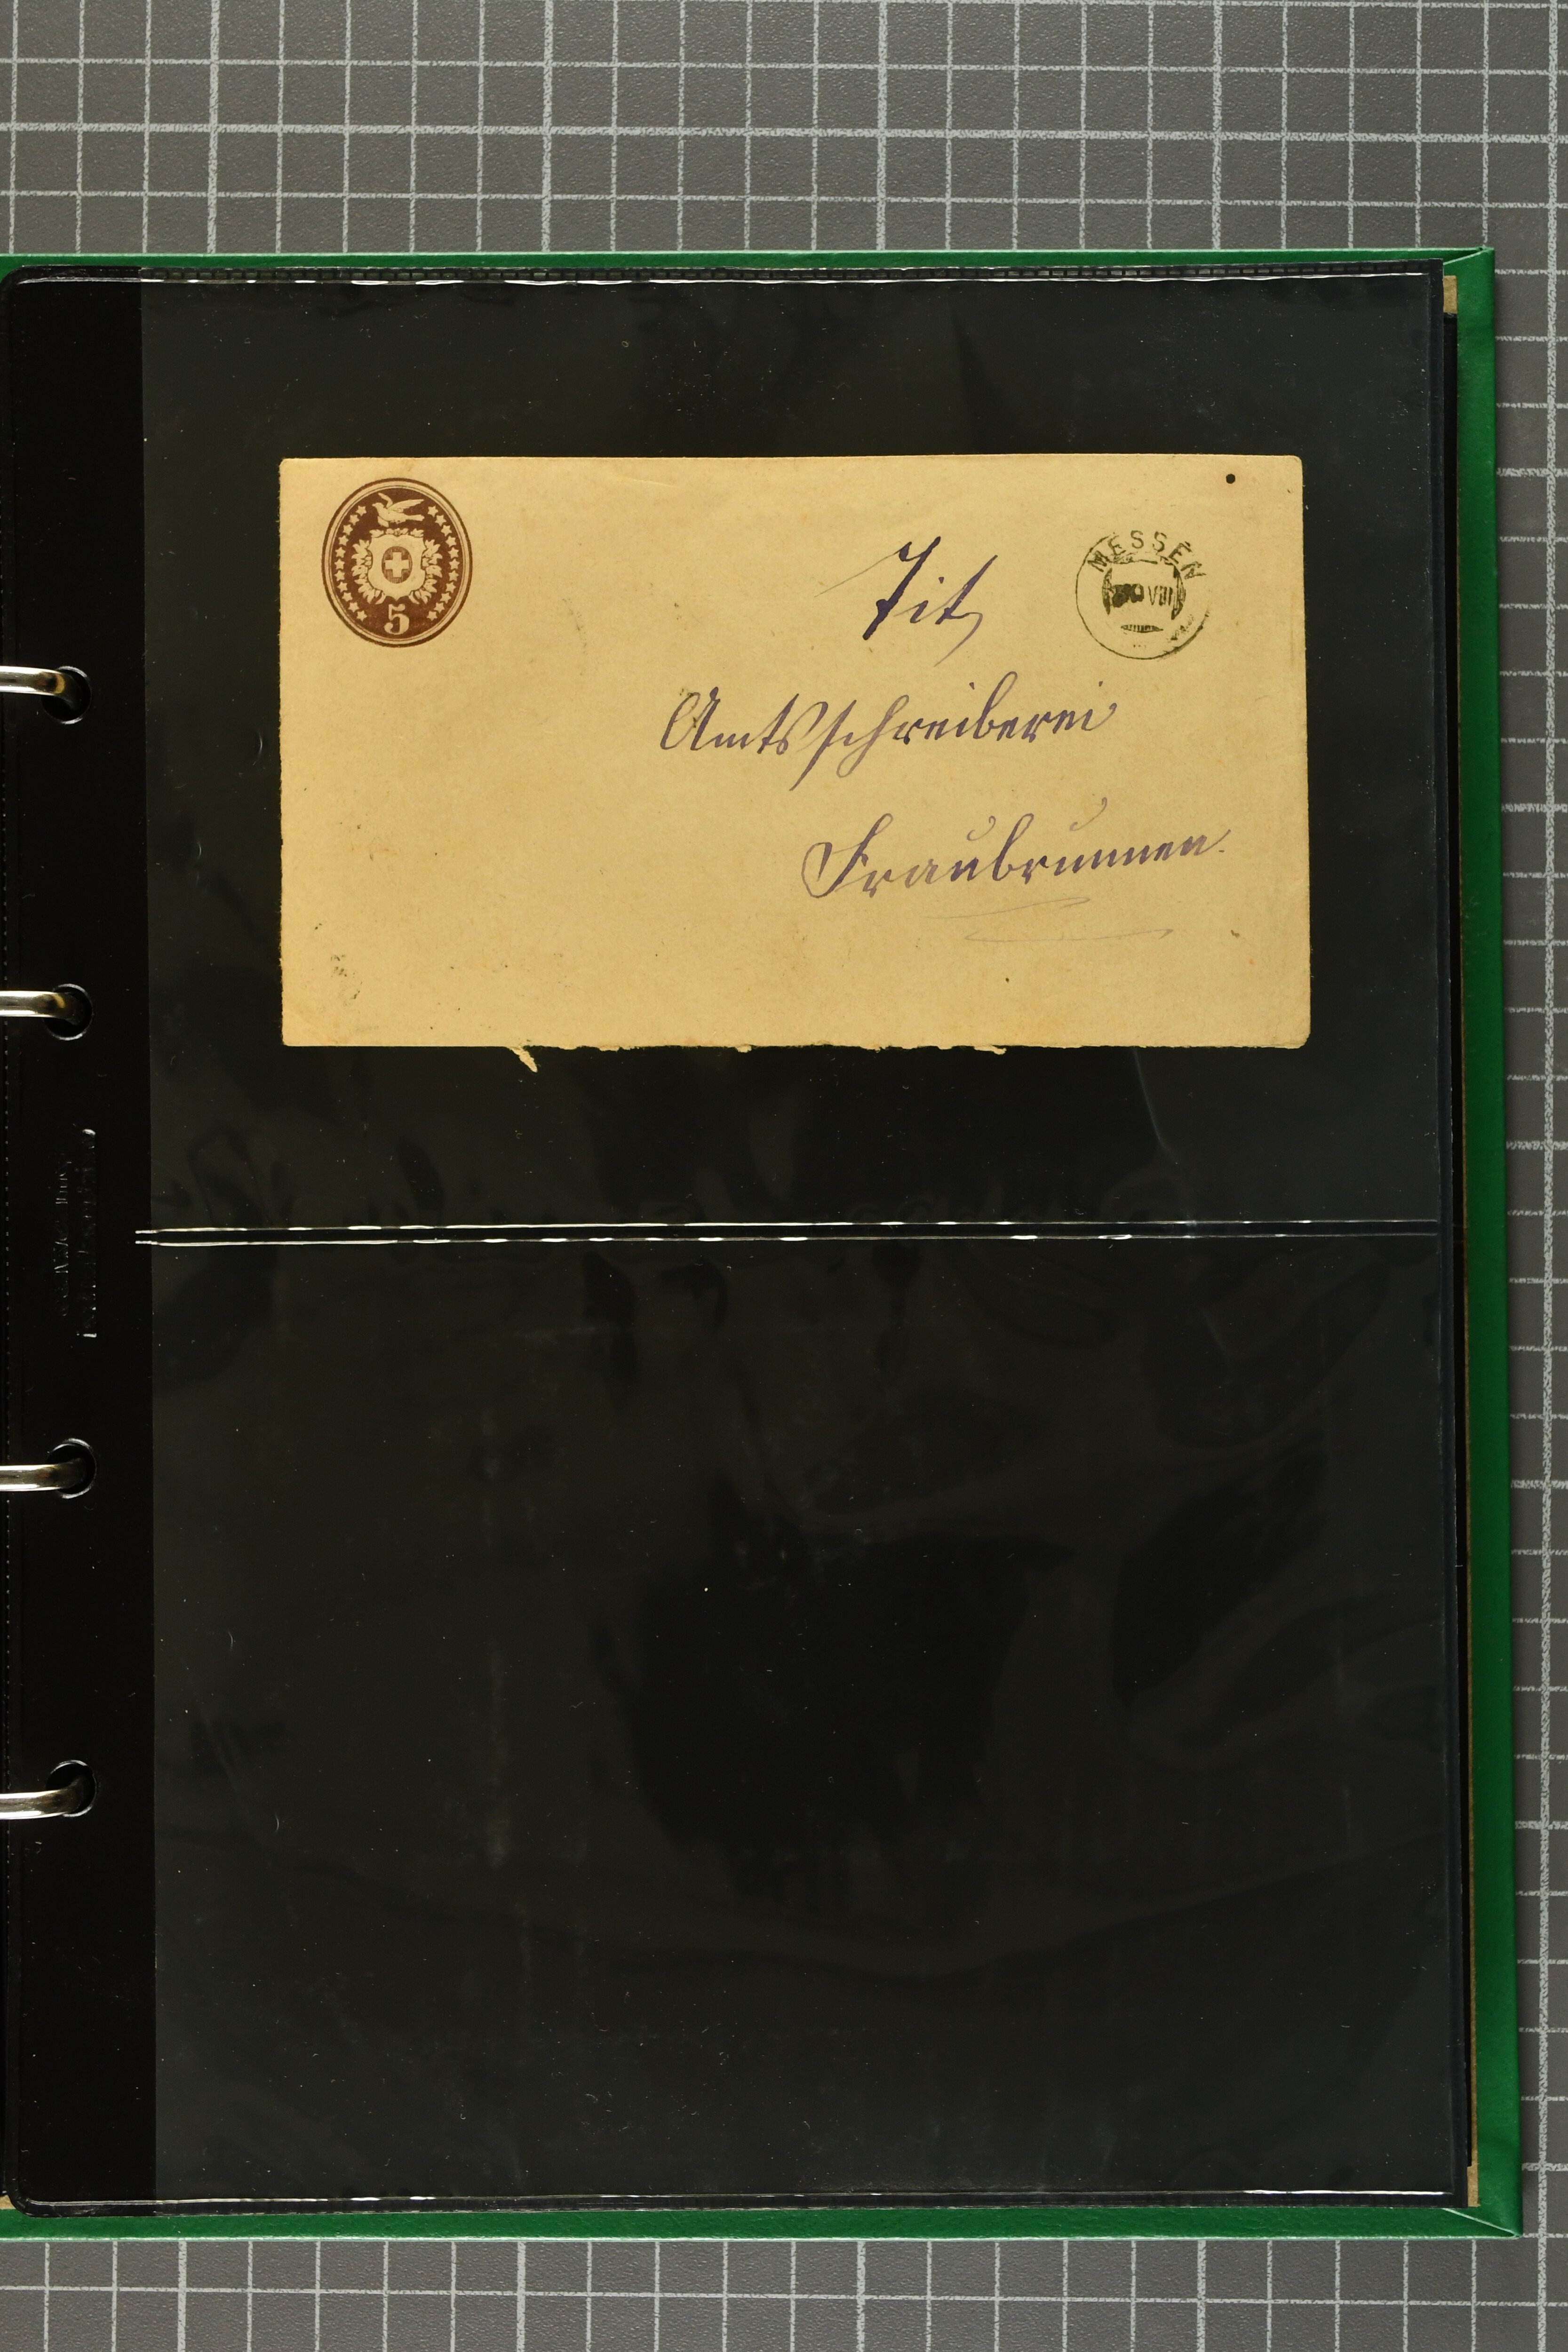 5
MESSEN
VIII
Tit,
Amtsschreiberei
Fraubrunnen.